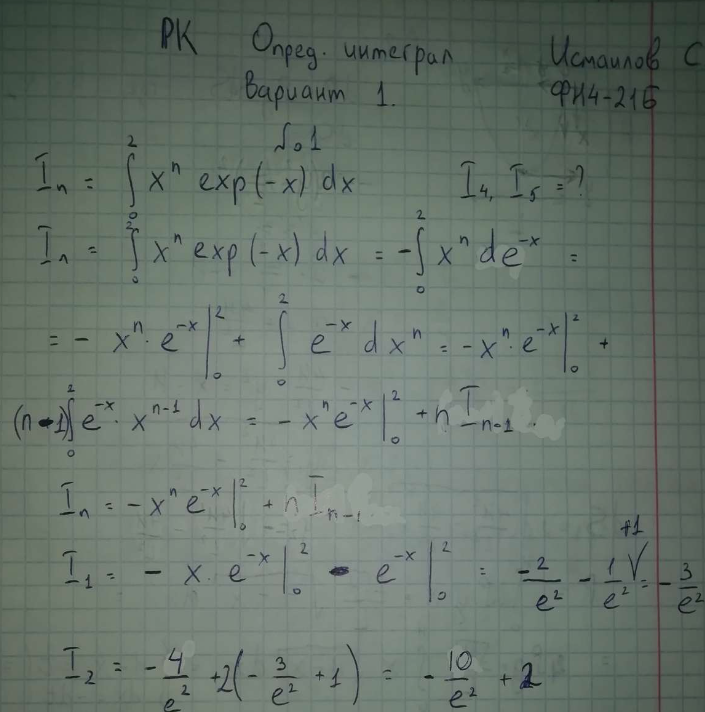 РК Опред. интеграл Исмаилов С
Вариант 1. ФН4-21Б
№1
Iₙ = ∫₀² xⁿ exp(-x) dx I₄, I₅ = ?
Iₙ = ∫₀² xⁿ exp(-x) dx = -∫₀² xⁿ de⁻ˣ =
= - xⁿ · e⁻ˣ |₀² + ∫₀² e⁻ˣ dxⁿ = -xⁿ · e⁻ˣ |₀² +
(n-1)∫₀² e⁻ˣ · xⁿ⁻¹ dx = -xⁿe⁻ˣ |₀² + nIₙ₋₁.
Iₙ = -xⁿe⁻ˣ |₀² + nIₙ₋₁
+1
I₁ = - x · e⁻ˣ |₀² - e⁻ˣ |₀² = -2/e² - 1/e² = -3/e²
I₂ = -4/e² + 2(-3/e² + 1) = -10/e² + 2